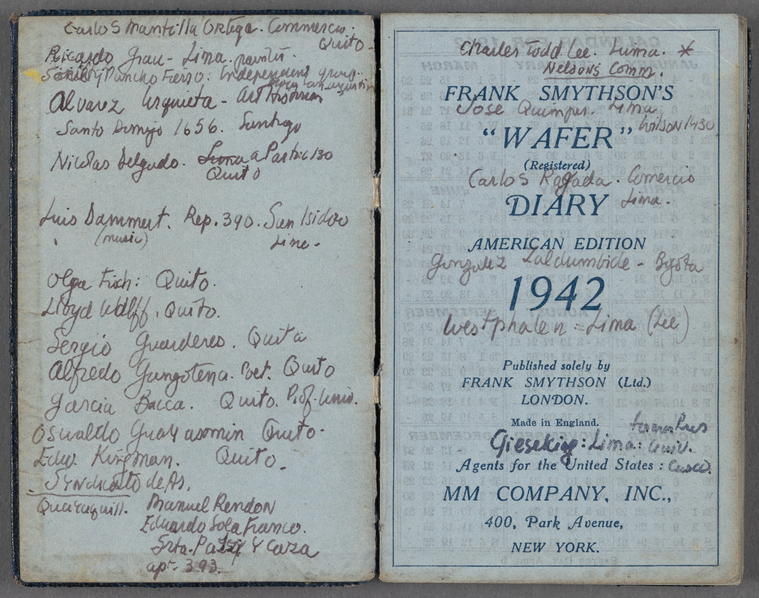 Carlos Mantilla Ortega. Commercio.
Quito -
Ricardo Grau - Lima. painter.
y Pancho Fierro: Independiente group.
Alvarez Urquieta - Art Historian
Santo Domigo 1656. Santiago
Nicolas Delgado. a Pasto 6130
Quito
Luis Dammert. Rep. 390. San Isidro
(music) Lima -
Olga Fisch: Quito.
Lloyd Wolff, Quito.
Sergio Guarderos. Quito
Alfredo Gangotena. Poet. Quito
Garcia Bacca. Quito. Prof. Univ.
Oswaldo Guayasamin Quito -
Edu. Kingman. Quito.
Syndicato de As.
Guayaquill. Manuel Rendon
Eduardo Sola Franco.
Srta. Y Caza
apt. 393.
Charles Todd Lee. Lima. *
Nelson's Comm.
FRANK SMYTHSON'S
Jose Quimper. Lima
"WAFER" Wilson 1430
(Registered)
Carlos Raygada. Comercio
DIARY Lima.
AMERICAN EDITION
Gonzalez Zaldumbide - Bogota
1942
Westphalen = Lima (Lee)
Published solely by
FRANK SMYTHSON (Ltd.)
LONDON.
Made in England.
Gieseking: Lima:
Agents for the United States: Cusco.
MM COMPANY, INC.,
400, Park Avenue,
NEW YORK.